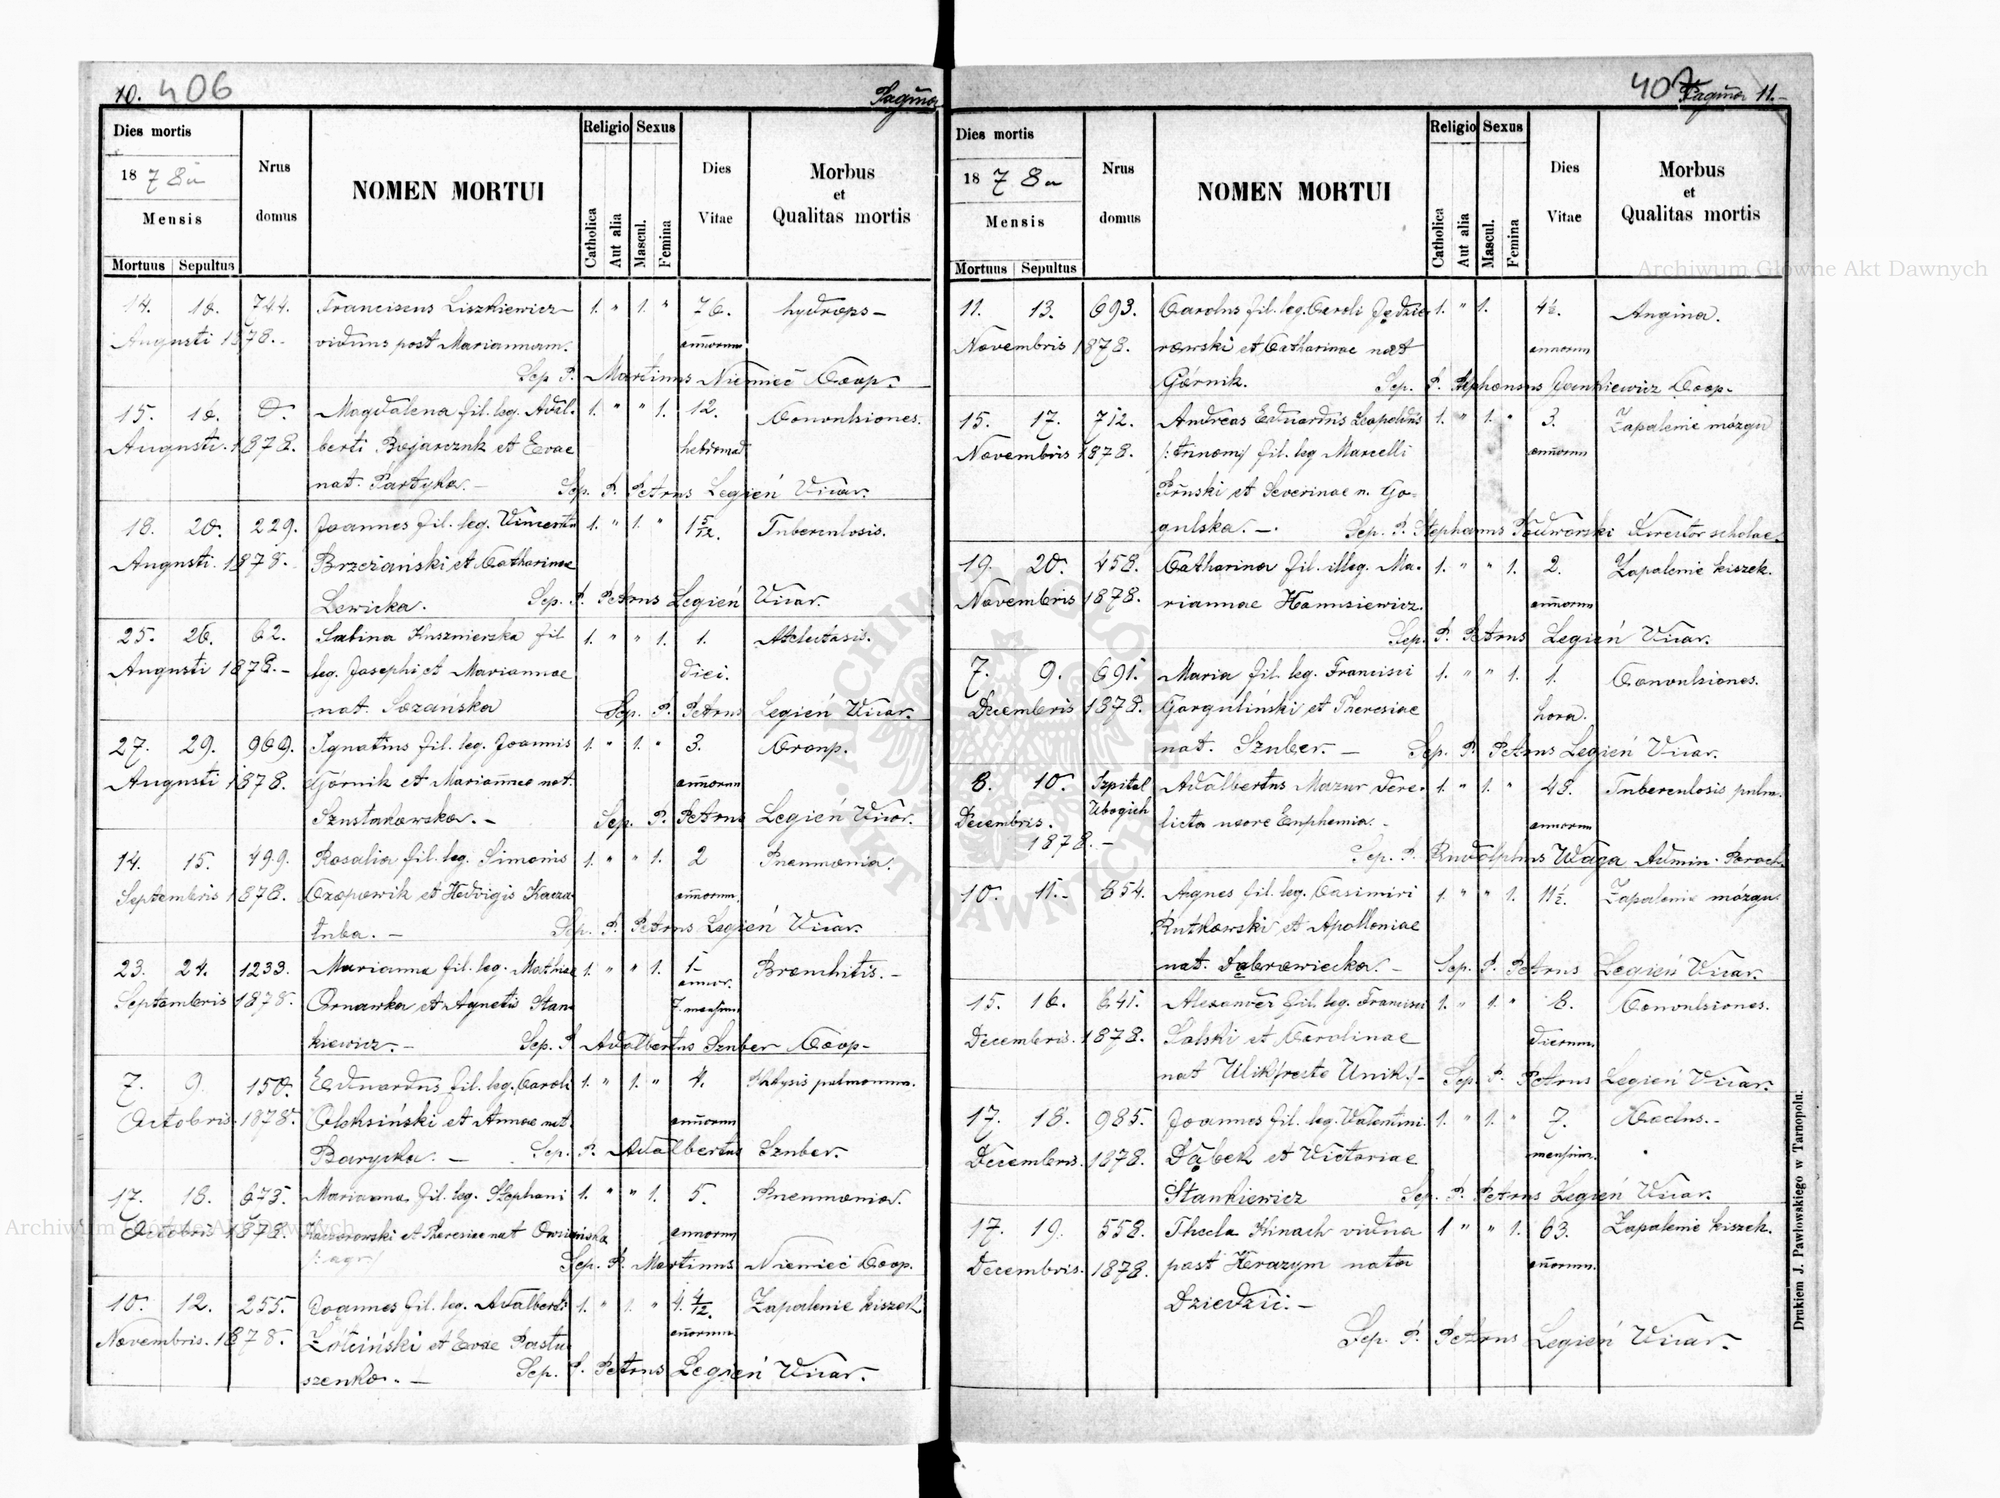 10. 406
Pagina
Dies mortis
1878a
Mensis
Mortuus Sepultus
Nrus domus
NOMEN MORTUI
Religio
Catholica
Aut alia
Sexus
Mascul.
Femina
Dies Vitae
Morbus et Qualitas mortis
14. 16. 744. Franciscus Liszkiewicz 1. " 1. " 76. hydrops –
Augusti 1878. – viduus post Mariannam. annorum
Sep. P. Martinus Niemieć Coop.
15. 16. 0. Magdalena fil. leg. Adal- 1. " " 1. 12. Convulsiones.
Augusti. 1878. berti Bojarczuk et Evae hebdomad
nat. Partyka. – Sep. P. Petrus Legień Vicar.
18. 20. 229. Joannes fil. leg. Vincentii 1. " 1. " 1 5/12. Tuberculosis.
Augusti. 1878. Brzeżański et Catharinae
Lewicka. Sep. P. Petrus Legień Vicar.
25. 26. 62. Sabina Kusznierzka fil 1. " " 1. 1. Atelectasis.
Augusti 1878. – leg. Josephi et Mariannae diei.
nat. Sozańska Sep. P. Petrus Legień Vicar.
27. 29. 969. Ignatius fil. leg. Joannis 1. " 1. " 3. Croup.
Augusti 1878. Górnik et Mariannae nat. annorum
Szustakowska. – Sep. P. Petrus Legień Vicar.
14. 15. 499. Rosalia fil. leg. Simonis 1. " " 1. 2 Pneumonia.
Septembris 1878. Czopowik et Hedvigis Kacza- annorum.
łuba. – Sep. P. Petrus Legień Vicar.
23. 24. 1233. Marianna fil. leg. Mathiae 1. " " 1. 1 – Bronchitis. –
annor.
Septembris 1878. Ornawka et Agnetis Stan- 7. mensium
kiewicz. – Sep. P. Adalbertus Szuber Coop –
7. 9. 150. Eduardus fil. leg. Caroli 1. " 1. " 4. Phtysis pulmonum.
Octobris. 1878. Oleksiński et Annae nat. annorum
Barycka. – Sep. P. Adalbertus Szuber.
17. 18. 673. Marianna fil. leg. Stephani 1. " " 1. 5. Pneumonia.
Octobris 1878. Kaczorowski et Theresiae nat annorum
Sep. P. Martinus Niemieć Coop.
10. 12. 255. Joannes fil. leg. Adalberti 1. " 1. " 4. 4/12. Zapalenie kiszek
Novembris. 1878. Zółciński et Evae Pastu- annorum
szenko. – Sep. P. Petrus Legień Vicar. –
407 Pagina 11. –
Dies mortis
1878a
Mensis
Mortuus Sepultus
Nrus domus
NOMEN MORTUI
Religio
Catholica
Aut alia
Sexus
Mascul.
Femina
Dies Vitae
Morbus et Qualitas mortis
11. 13. 693. Carolus fil. leg. Caroli Jędzie- 1. " 1. Angina.
Novembris 1878. rowski et Catharinae nat annorum
Górnik. Sep. P. Alphonsus Jankiewicz Coop –
15. 17. 712. Andreas Eduardus Leopoldus 1. " 1. " 3. Zapalenie mózgu
Novembris 1878. fil. leg Marcelli annorum
Pruski et Severinae n. Go-
gulska. – Sep. P. Stephanus Podworski Director scholae.
19. 20. 458. Catharina fil. illeg. Ma- 1. " " 1. 2. Zapalenie kiszek.
Novembris 1878. riannae Hanusiewicz. annorum
Sep. P. Petrus Legień Vicar.
7. 9. 691. Maria fil. leg. Francisci 1. " " 1. 1. Convulsiones.
Decembris 1878. Gorguliński et Theresiae hora.
nat. Szuber. – Sep. P. Petrus Legień Vicar.
8. 10. Szpital Adalbertus Mazur dere- 1. " 1. " 48. Tuberculosis pulm.
Decembris. Ubogich licta uxore Euphemia. – annorum
1878. – Sep. P. Rudolphus Waga Admin. Paroch.
10. 11. – 854. Agnes fil. leg. Casimiri 1. " " 1. 11 1/2. Zapalenie mózgu.
Rutkowski et Apolloniae
nat. Dąbrowiecka. – Sep. P. Petrus Legień Vicar.
15. 16. 641. Alexander fil. leg. Francisci 1. " 1. " 8. Convulsiones.
Decembris. 1878. Salski et Carolinae dierum.
nat Ulik /:recte Unik:/ – Sep. P. Petrus Legień Vicar.
17. 18. 985. Joannes fil. leg. Valentini 1. " 1. " 7.
Decembris. 1878. Dąbek et Victoriae mensium.
Stankiewicz Sep. P. Petrus Legień Vicar.
17. 19. 558. Thecla Kinach vidua 1 " " 1. 63. Zapalenie kiszek.
Decembris. 1878. post Herazym nata annorum.
Dziedzic. –
Sep. P. Petrus Legień Vicar. –
Drukiem J. Pawłowskiego w Tarnopolu.
Archiwum Główne Akt Dawnych
Archiwum Główne Akt Dawnych
ARCHIWUM GŁÓWNE AKT DAWNYCH